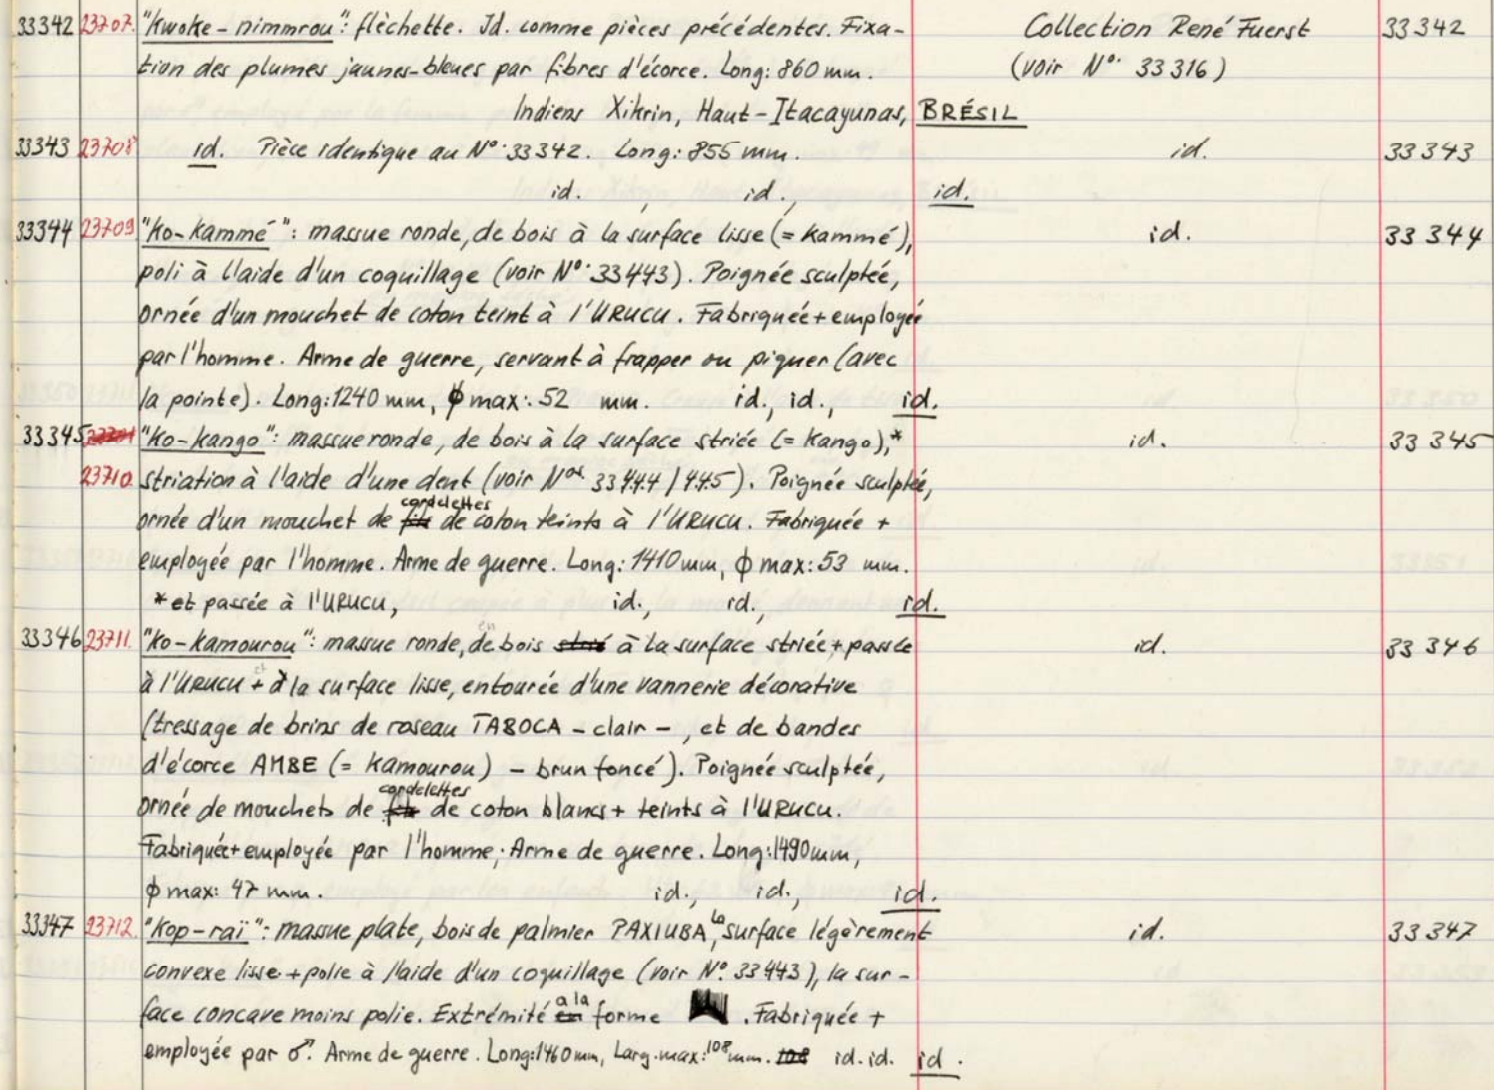 33342 23707. "Kwoke-nimmrou": fléchette. Id. comme pièces précédentes. Fixa- Collection René Fuerst 33342
tion des plumes jaunes-bleues par fibres d'écorce. Long: 860 mm. (voir N°. 33316)
Indiens Xikrin, Haut-Itacayunas, BRÉSIL
33343 23708 id. Pièce identique au N°. 33342. Long: 855 mm. id. 33343
id. , id., id.
33344 23709 "Ko-kammé": massue ronde, de bois à la surface lisse (= kammé), id. 33344
poli à l'aide d'un coquillage (voir N°. 33443). Poignée sculptée,
ornée d'un mouchet de coton teint à l'URUCU. Fabriquée + employée
par l'homme. Arme de guerre, servant à frapper ou piquer (avec
la pointe). Long: 1240 mm, ϕ max: 52 mm. id., id., id.
33345 "Ko-kango": massue ronde, de bois à la surface striée (= Kango),* id. 33345
23710. striation à l'aide d'une dent (voir Nos. 33444/445). Poignée sculptée,
ornée d'un mouchet de fils cordelettes de coton teints à l'URUCU. Fabriquée +
employée par l'homme. Arme de guerre. Long: 1410 mm, ϕ max: 53 mm.
* et passée à l'URUCU, id., id., id.
33346 23711. "Ko-kamourou": massue ronde, de en bois strié à la surface striée + passée id. 33346
à l'URUCU + à la surface lisse, entourée d'une vannerie décorative
(tressage de brins de roseau TABOCA - clair -, et de bandes
d'écorce AMBE (= kamourou) - brun foncé). Poignée sculptée,
ornée de mouchets de fils cordelettes de coton blancs + teints à l'URUCU.
Fabriquée + employée par l'homme. Arme de guerre. Long: 1490 mm,
ϕ max: 47 mm. id., id., id.
33347 23712. "Kop-raï": massue plate, bois de palmier PAXIUBA, la surface légèrement id. 33347
convexe lisse + polie à l'aide d'un coquillage (voir N°. 33443), la sur-
face concave moins polie. Extrémité en a la forme . Fabriquée +
employée par ♂. Arme de guerre. Long: 1460 mm, Larg. max: 108 mm. 108 id. id. id.